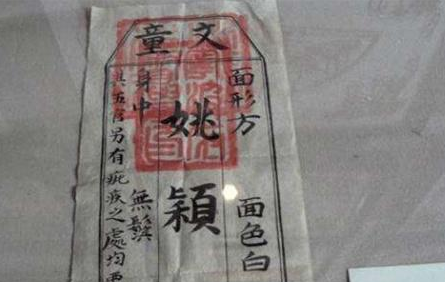 文童
面形方 面色白
姚穎
身中 無鬚
其五官另有疵痕之處均